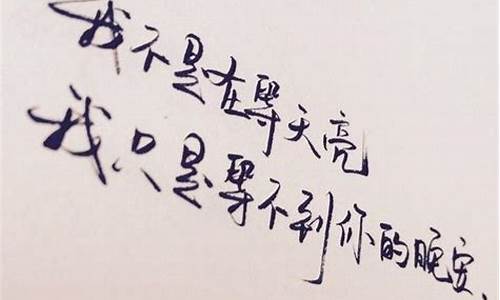 我不是在等天亮
我只是等不到你的晚安、